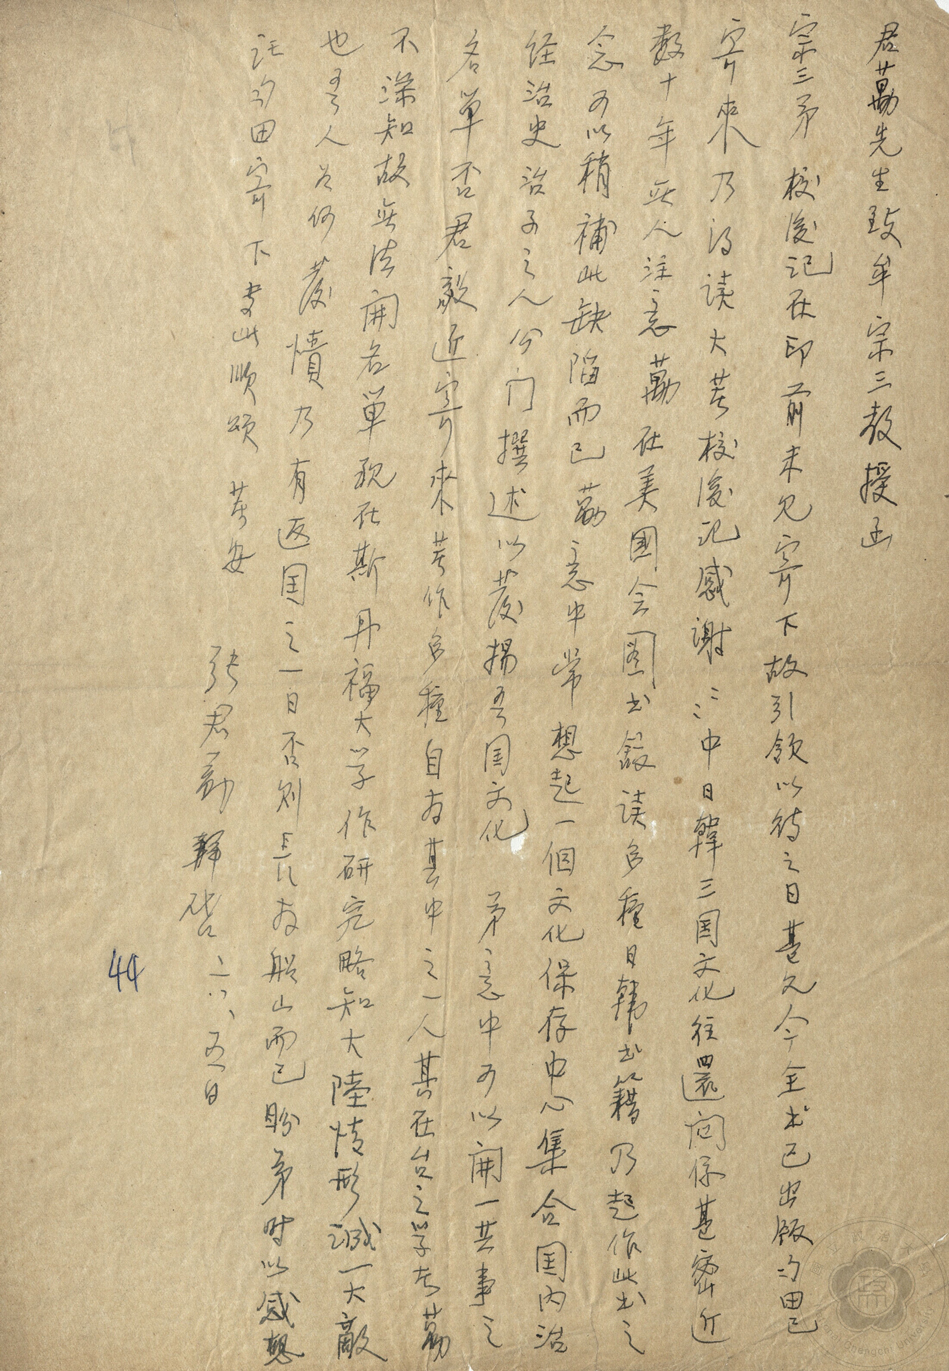 君勱先生致牟宗三教授函
宗三弟 校後記在印前未見寄下故引領以待之日甚久今全书已出版均田已
寄來乃得读大著校後记感谢〻中日韓三国文化往還関係甚密近
数十年無人注意勱在美國会图书館读多種日韓书籍乃起作此书之
念可以稍補此缺陷而已勱意中常想起一個文化保存中心集合国内治
经治史治子之人分门撰述以發揚吾国文化 弟意中可以開一共事之
名單否君毅近寄來著作多種自为其中之一人其在台之学者勱
不深知故無法開名單现在斯丹福大学作研究略知大陸情形诚一大敵
也吾人如何發憤乃有返国之一日否则長为船山而已盼弟时以感想
託均田寄下专此顺颂 著安
张君勱 拜啓 二八、五一日
44